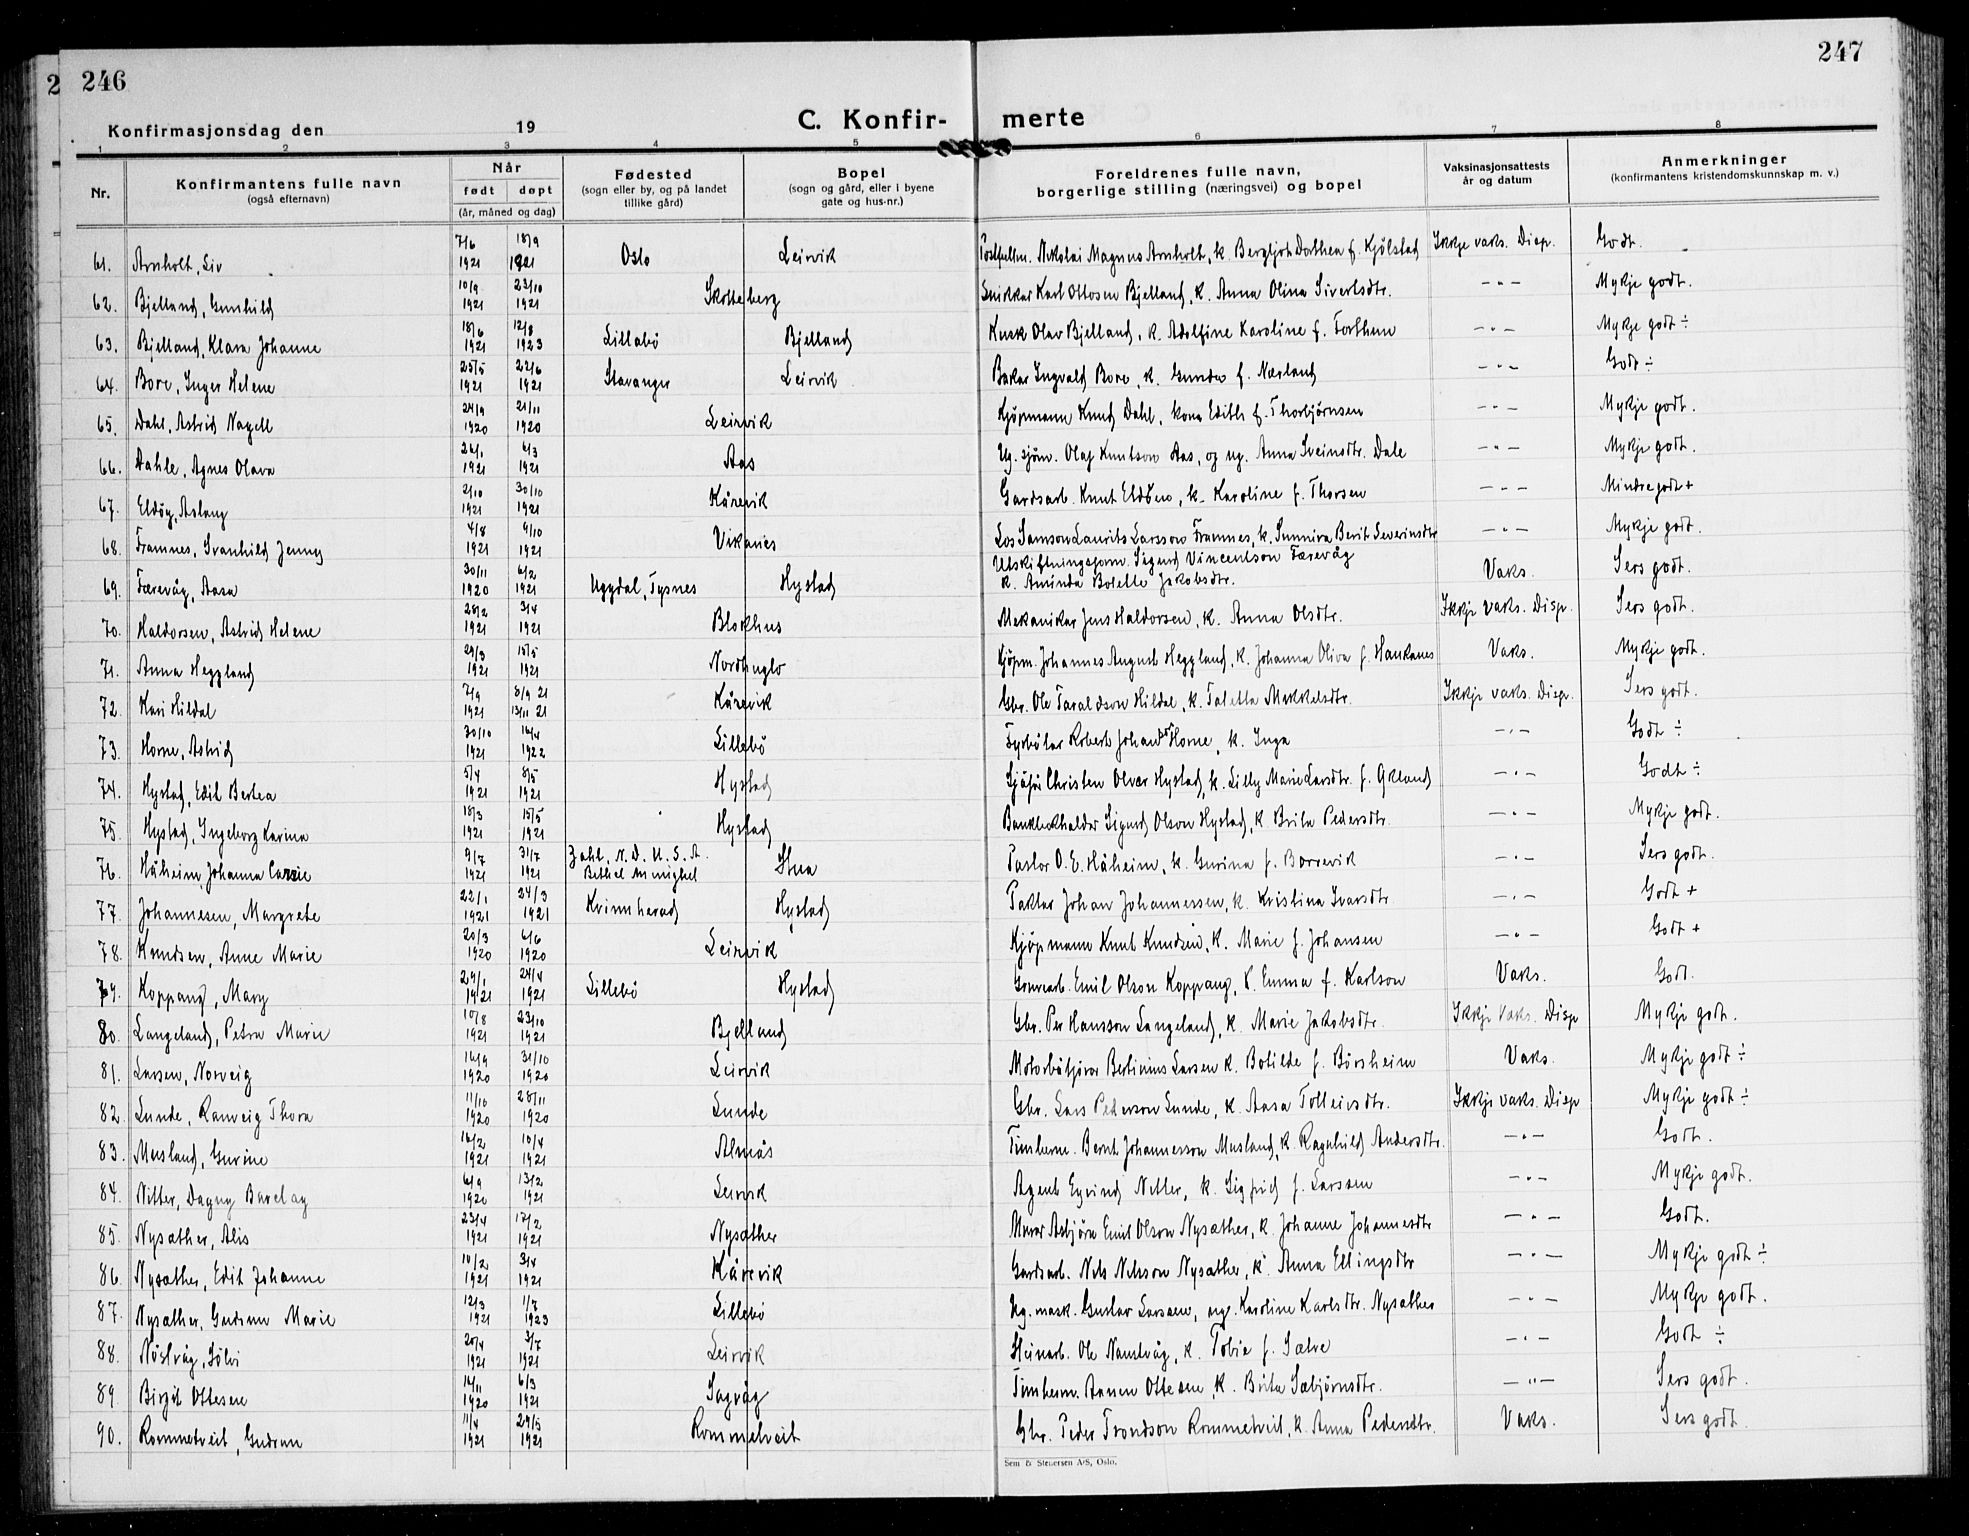 246
247
Konfirmasjonsdag den 19
C. Konfir- merte
1 2 3 4 5 6 7 8
Nr. Konfirmantens fulle navn (også efternavn) Når født døpt (år, måned og dag) Fødested (sogn eller by, og på landet tillike gård) Bopel (sogn og gård, eller i byene gate og hus-nr.) Foreldrenes fulle navn, borgerlige stilling (næringsvei) og bopel Vaksinasjonsattests år og datum Anmerkninger (konfirmantens kristendomskunnskap m. v.)
61. Arnholt, Liv 7/6 1921 18/9 1921 Oslo Leirvik Postfullm. Nikolai Magnus Arnholt, k. Bergljot Dorthea f. Kjølstad Ikkje vaks. Disp. Godt.
62. Bjelland, Gunhild 10/9 1921 23/10 1921 Skotteberg Snikkar Karl Ottosen Bjelland, k. Anna Olina Sivertsdtr. -"- Mykje godt.
63. Bjelland, Klara Johanne 18/6 1921 12/8 1923 Lillebø Bjelland Kusk Olav Bjelland, k. Adolfine Karoline f. Forthun -"- Mykje godt ÷
64. Bore, Inger Helene 25/5 1921 22/6 1921 Stavanger Leirvik Bakar Ingvald Bore, k. Gunda f. Nærland -"- Godt ÷
65. Dahl, Astrid Nagell 24/9 1920 21/11 1920 Leirvik Kjøpmann Knud Dahl, kona Edith f. Thorbjørnsen -"- Mykje godt.
66. Dahle, Agnes Olava 26/1 1921 6/3 1921 Aas Ug. sjøm. Olaf Knutson Aas, og ug. Anna Sveinsdtr. Dale -"- Mykje godt.
67. Eldøy, Aslaug 2/10 1921 30/10 1921 Kårevik Gardsarb. Knut Eldøen, k. Karoline f. Thorsen -"- Mindre godt +
68. Framnes, Svanhild Jenny 4/8 1921 9/10 1921 Vikanes Los Samson Laurits Larsson Framnes, k. Sunniva Berit Severinsdtr -"- Mykje godt.
69. Færevåg, Aasa 30/11 1920 6/2 1921 Uggdal, Tysnes Hystad Utskiftningsform. Sigurd Vincentson Færevåg k. Aminda Bolette Jakobsdtr. Vaks. Sers godt.
70. Haldorsen, Astrid Helene 28/2 1921 3/4 1921 Blokhus Mekanikar Jens Haldorsen, k. Anna Olsdtr. Ikkje vaks. Disp. Sers godt.
71. Anna Heggland 29/3 1921 15/5 1921 Nordhuglo Kjøpm. Johannes August Heggland, k. Johanna Oliva f. Haukanes Vaks. Mykje godt.
72. Kari Hildal 7/9 1921 8/9 21 13/11 21 Kårevik Gbr. Ole Taraldson Hildal, k. Taletta Mikkelsdtr. Ikkje vaks. Disp. Sers godt.
73. Horne, Astrid 30/10 1921 16/4 1922 Lillebø Fyrbøtar Robert Johan Horne, k. Inga -"- Godt ÷
74. Hystad, Edit Bertea 5/4 1921 8/5 1921 Hystad Sjåfør Christen Olvar Hystad, k. Lilly Marie Larsdtr. f. Økland -"- Godt ÷
75. Hystad, Ingeborg Karina 18/3 1921 15/5 1921 Hystad Bankbokhaldar Sigurd Olson Hystad, k. Brita Pedersdtr. -"- Mykje godt.
76. Håheim, Johanna Carrie 9/7 1921 31/7 1921 Zahl, N. D. U. S. A. Bethel menighet Stua Pastor O. E. Håheim, k. Gurina f. Borrevik -"- Sers godt.
77. Johannesen, Margrete 22/1 1921 24/3 1921 Kvinnherad Hystad Faktor Johan Johannessen, k. Kristina Ivarsdtr -"- Godt +
78. Knudsen, Anne Marie 20/3 1920 6/6 1920 Leirvik Kjøpmann Knut Knudsen, k. Marie f. Johansen -"- Godt +
79. Koppang, Mary 29/1 1921 24/4 1921 Lillebø Hystad Gruvearb. Emil Olson Koppang, k. Emma f. Karlson Vaks. Godt.
80. Langeland, Petra Marie 10/8 1921 23/10 1921 Bjelland Gbr. Per Hansson Langeland, k. Marie Jakobsdtr. Ikkje vaks. Disp Mykje godt.
81. Larsen, Norveig 16/9 1920 31/10 1920 Leirvik Motorbåtførar Bertinius Larsen k. Botilde f. Børsheim Vaks. Mykje godt ÷
82. Lunde, Ranveig Thora 11/10 1920 28/11 1920 Lunde Gbr. Lars Pederson Lunde, k. Aasa Tolleivsdtr. Ikkje vaks. Disp Mykje godt ÷
83. Musland, Gurine 16/2 1921 10/4 1921 Almås Timberm. Bernt Johannesson Musland, k. Ragnhild Andersdtr. -"- Godt.
84. Nitter, Dagny Barclay 6/9 1920 13/2 1921 Leirvik Agent Eyvind Nitter, k. Sigfrid f. Larssen -"- Mykje godt.
85. Nysæther, Alis 23/4 1921 17/2 1921 Nysæther Murar Asbjørn Emil Olson Nysæther, k. Johanne Johannesdtr -"- Godt.
86. Nysæther, Edit Johanne 10/2 1921 3/4 1921 Kårevik Gardsarb. Nils Nilsson Nysæther, k. Anna Ellingsdtr -"- Mykje godt ÷
87. Nysæther, Gudrun Marie 12/3 1921 1/7 1923 Lillebø Ug. mask. Gustav Larsen, ug. Karoline Karlsdtr. Nysæther -"- Mykje godt.
88. Nøstvåg, Sølvi 20/4 1921 3/7 1921 Leirvik Steinarb. Ole Nøstvåg, k. Tobia f. Sætre -"- Godt ÷
89 Birgit Ottesen 16/11 1920 6/3 1921 Sagvåg Timberm. Annen Ottesen, k. Brita Sæbjørnsdtr. -"- Sers godt.
90. Rommetveit, Gudrun 11/4 1921 29/5 1921 Rommetveit Gbr. Peder Trondson Rommetveit, k. Anna Pedersdtr. Vaks. Sers godt.
Sem & Stenersen A/S, Oslo.